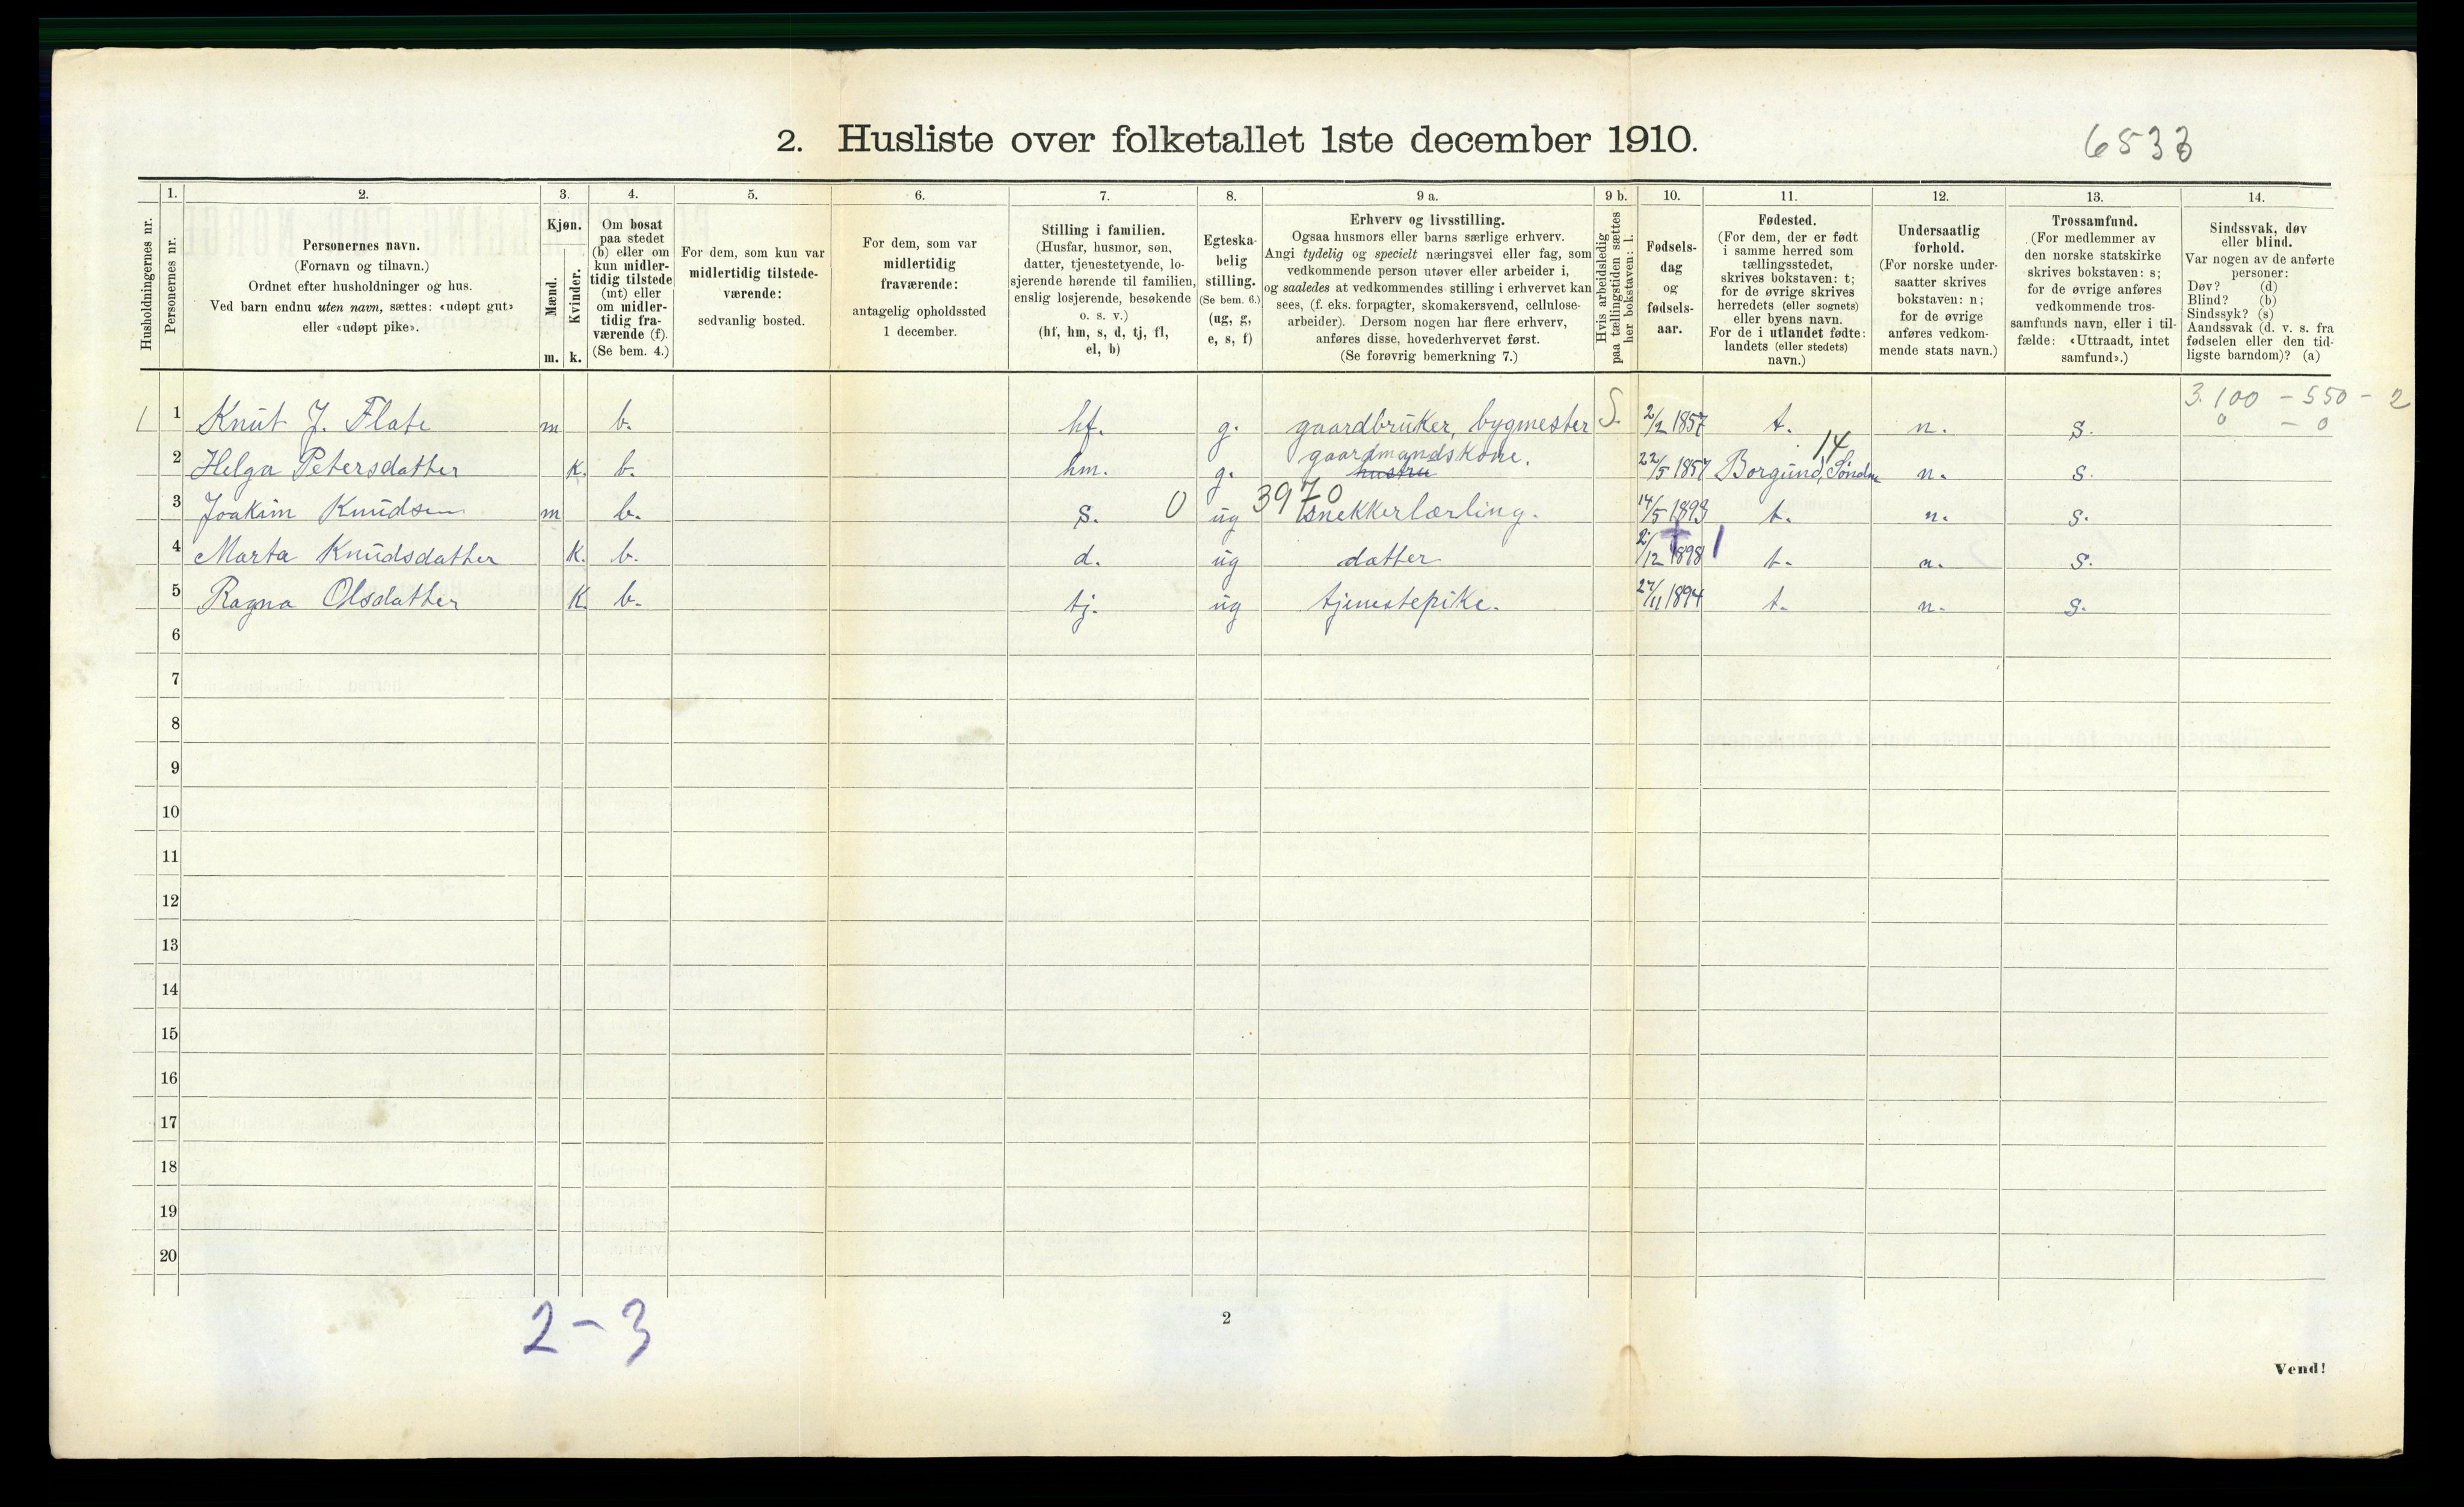 2. Husliste over folketallet 1ste december 1910.
6533
1. 2. 3. 4. 5. 6. 7. 8. 9 a. 9 b. 10. 11. 12. 13. 14.
Husholdningernes nr.
Personernes nr.
Personernes navn.
(Fornavn og tilnavn.)
Ordnet efter husholdninger og hus.
Ved barn endnu uten navn, sættes: «udøpt gut»
eller «udøpt pike».
Kjøn.
Mænd.
Kvinder.
m. k.
Om bosat
paa stedet
(b) eller om
kun midler-
tidig tilstede
(mt) eller
om midler-
tidig fra-
værende (f).
(Se bem. 4.)
For dem, som kun var
midlertidig tilstede-
værende:
sedvanlig bosted.
For dem, som var
midlertidig
fraværende:
antagelig opholdssted
1 december.
Stilling i familien.
(Husfar, husmor, søn,
datter, tjenestetyende, lo-
sjerende hørende til familien,
enslig losjerende, besøkende
o. s. v.)
(hf, hm, s, d, tj, fl,
el, b)
Egteska-
belig
stilling.
(Se bem. 6.)
(ug, g,
e, s, f)
Erhverv og livsstilling.
Ogsaa husmors eller barns særlige erhverv.
Angi tydelig og specielt næringsvei eller fag, som
vedkommende person utøver eller arbeider i,
og saaledes at vedkommendes stilling i erhvervet kan
sees, (f. eks. forpagter, skomakersvend, cellulose-
arbeider). Dersom nogen har flere erhverv,
anføres disse, hovederhvervet først.
(Se forøvrig bemerkning 7.)
Hvis arbeidsledig
paa tællingstiden sættes
her bokstaven: l.
Fødsels-
dag
og
fødsels-
aar.
Fødested.
(For dem, der er født
i samme herred som
tællingsstedet,
skrives bokstaven: t;
for de øvrige skrives
herredets (eller sognets)
eller byens navn.
For de i utlandet fødte:
landets (eller stedets)
navn.)
Undersaatlig
forhold.
(For norske under-
saatter skrives
bokstaven: n;
for de øvrige
anføres vedkom-
mende stats navn.)
Trossamfund.
(For medlemmer av
den norske statskirke
skrives bokstaven: s;
for de øvrige anføres
vedkommende tros-
samfunds navn, eller i til-
fælde: «Uttraadt, intet
samfund».)
Sindssvak, døv
eller blind.
Var nogen av de anførte
personer:
Døv? (d)
Blind? (b)
Sindssyk? (s)
Aandssvak (d. v. s. fra
fødselen eller den tid-
ligste barndom)? (a)
3.100 - 550 - 2
0 - 0
1 1 Knut J. Flate m b. hf. g. gaardbruker, bygmester S. 2/2 1857 t. n. s.
14
gaardmandskone.
2 Helga Petersdatter k. b. hm. g. hustru 22/5 1857 Borgund, Søndm n. s.
0 3970
3 Joakim Knudsen m b. s. ug snekkerlærling. 14/5 1893 t. n. s.
4 Marta Knudsdatter k. b. d. ug datter 2/12 1898 t. n. s.
5 Ragna Olsdatter k. b. tj. ug tjenestepike. 27/11 1894 t. n. s.
6
7
8
9
10
11
12
13
14
15
16
17
18
19
20
2-3
2
Vend!